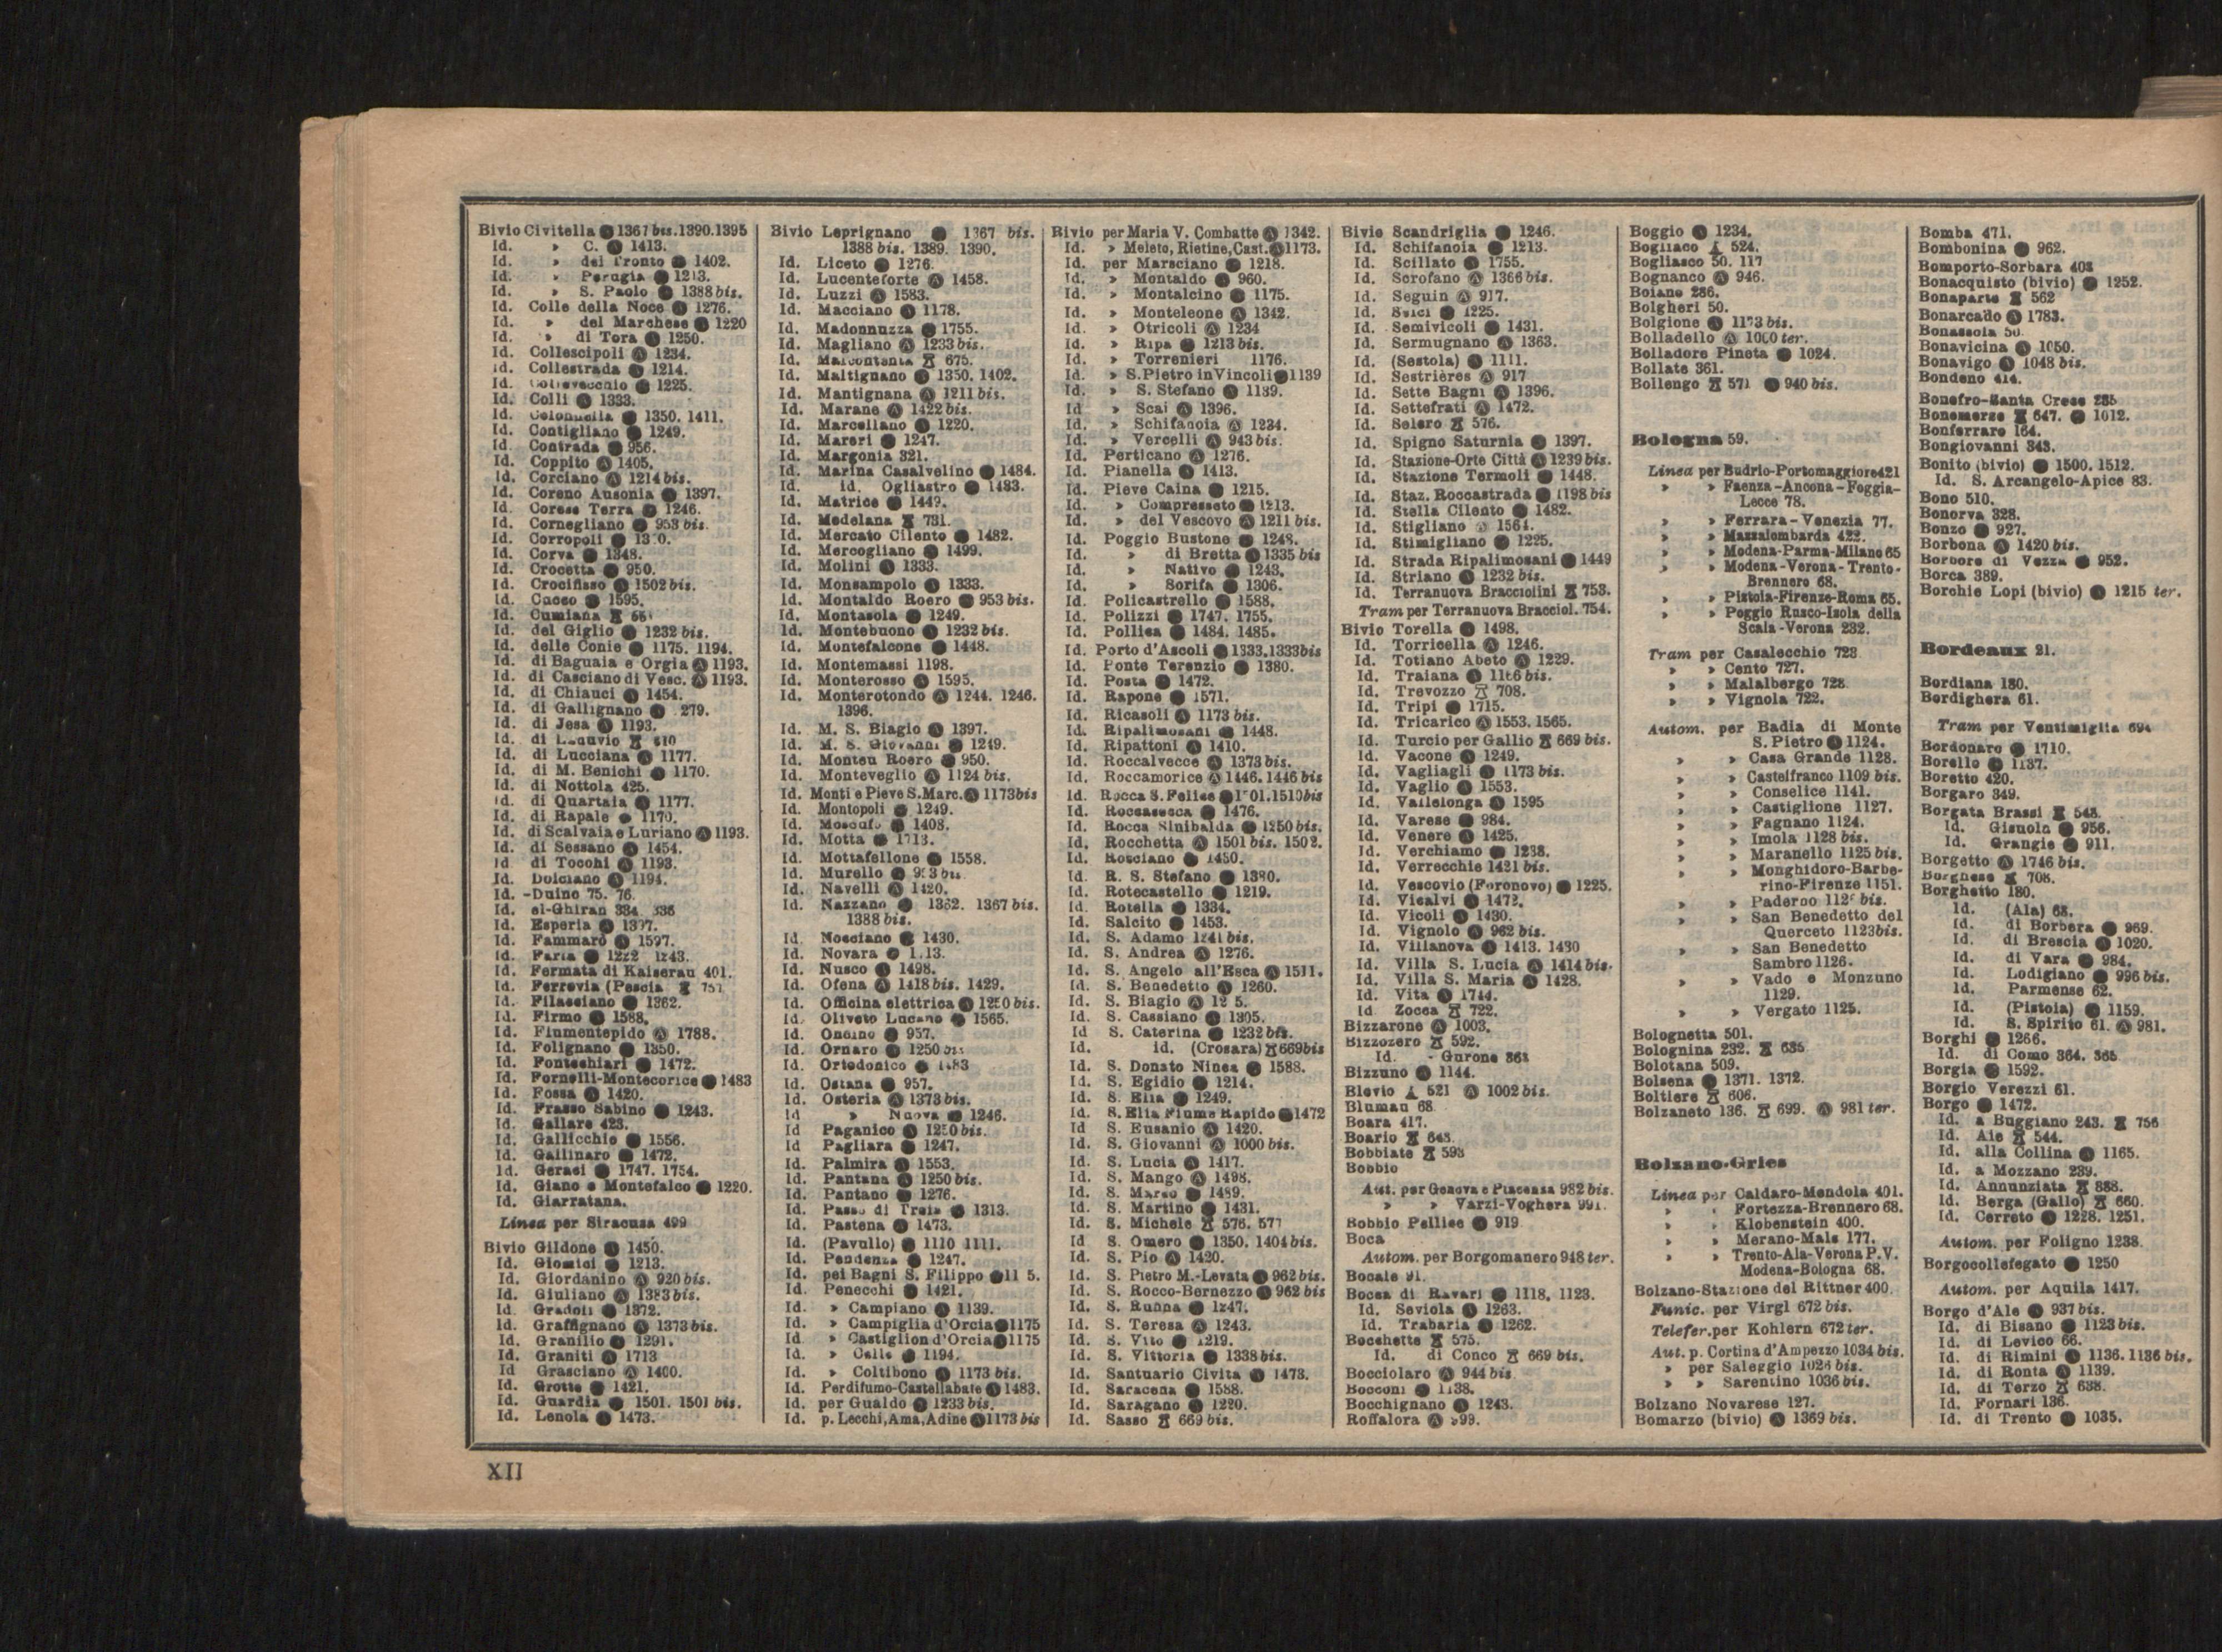 Bivio Civitella ● 1367 bis. 1390. 1395
Id. » C. Ⓐ 1413.
Id. » del Tronto ● 1402.
Id. » Perugia ● 1213.
Id. » S. Paolo ● 1388 bis.
Id. Colle della Noce ● 1276.
Id. » del Marchese ● 1220
Id. » di Tora Ⓐ 1250.
Id. Collescipoli Ⓐ 1234.
Id. Collestrada ● 1214.
Id. ● 1225.
Id. Colli Ⓐ 1333.
Id. Colonnella ● 1350. 1411.
Id. Contigliano ● 1249.
Id. Contrada ● 956.
Id. Coppito Ⓐ 1405.
Id. Corciano Ⓐ 1214 bis.
Id. Coreno Ausonia ● 1397.
Id. Corese Terra ● 1246.
Id. Cornegliano ● 953 bis.
Id. Corropoli ●
Id. Corva ● 1348.
Id. Crocetta ● 950.
Id. Crocifisso Ⓐ 1502 bis.
Id. Cuceo ● 1595.
Id. Cumiana
Id. del Giglio ● 1232 bis.
Id. delle Conie ● 1175. 1194.
Id. di Baguaia e Orgia Ⓐ 1193.
Id. di Casciano di Vesc. Ⓐ 1193.
Id. di Chiauci Ⓐ 1454.
Id. di Gallignano ● 279.
Id. di Jesa Ⓐ 1193.
Id. di Lanuvio 610
Id. di Lucciana Ⓐ 1177.
Id. di M. Benichi ● 1170.
Id. di Nottola 425.
Id. di Quartaia Ⓐ 1177.
Id. di Rapale ● 1170.
Id. di Scalvaia e Luriano Ⓐ 1193.
Id. di Sessano Ⓐ 1454.
Id. di Tocchi Ⓐ 1193.
Id. Dolciano Ⓐ 1194.
Id. -Duino 75. 76.
Id. el-Ghiran 334. 336
Id. Esperia Ⓐ 1397.
Id. Fammaro Ⓐ 1597.
Id. Farfa ● 1222 1243.
Id. Fermata di Kaiserau 401.
Id. Ferrovia (Pescia 757
Id. Filacciano ● 1362.
Id. Firmo ● 1588.
Id. Fiumentepido Ⓐ 1788.
Id. Folignano ● 1350.
Id. Fontechiari ● 1472.
Id. Fornelli-Montecorice ● 1483
Id. Fossa Ⓐ 1420.
Id. Frasso Sabino ● 1243.
Id. Gallare 423.
Id. Gallicchio ● 1556.
Id. Gallinaro ● 1472.
Id. Geraci ● 1747. 1754.
Id. Giano e Montefalco ● 1220.
Id. Giarratana.
Linea per Siracusa 499
Bivio Gildone Ⓐ 1450.
Id. Giomici ● 1213.
Id. Giordanino Ⓐ 920 bis.
Id. Giuliano Ⓐ 1383 bis.
Id. Gradoli ● 1372.
Id. Graffignano Ⓐ 1373 bis.
Id. Granilio ● 1291.
Id. Graniti Ⓐ 1713
Id Grasciano Ⓐ 1400.
Id. Grotte ● 1421.
Id. Guardia ● 1501. 1501 bis.
Id. Lenola ● 1473.
Bivio Leprignano ● 1367 bis.
1388 bis. 1389. 1390.
Id. Liceto ● 1276.
Id. Lucenteforte Ⓐ 1458.
Id. Luzzi Ⓐ 1583.
Id. Macciano Ⓐ 1178.
Id. Madonnuzza ● 1755.
Id. Magliano Ⓐ 1233 bis.
Id. Malcontenta 675.
Id. Maltignano ● 1350. 1402.
Id. Mantignana Ⓐ 1211 bis.
Id. Marane Ⓐ 1422 bis.
Id. Marcellano ● 1220.
Id. Mareri ● 1247.
Id. Margonia 321.
Id. Marina Casalvelino ● 1484.
Id. id. Ogliastro ● 1483.
Id. Matrice ● 1449.
Id. Medelana 731.
Id. Mercato Cilento ● 1482.
Id. Mercogliano ● 1499.
Id. Molini Ⓐ 1333.
Id. Monsampolo Ⓐ 1333.
Id. Montaldo Roero ● 953 bis.
Id. Montasola ● 1249.
Id. Montebuono ● 1232 bis.
Id. Montefalcone ● 1448.
Id. Montemassi 1198.
Id. Monterosso Ⓐ 1595.
Id. Monterotondo Ⓐ 1244. 1246.
1396.
Id. M. S. Biagio Ⓐ 1397.
Id. M. S. Giovanni ● 1249.
Id. Monteu Roero ● 950.
Id. Monteveglio Ⓐ 1124 bis.
Id. Monti e Pieve S. Marc. Ⓐ 1173 bis
Id. Montopoli ● 1249.
Id. Moscufo ● 1408.
Id. Motta ● 1713.
Id. Mottafellone ● 1558.
Id. Murello ●
Id. Navelli Ⓐ 1420.
Id. Nazzano ● 1362. 1367 bis.
1388 bis.
Id. Nosciano ● 1430.
Id. Novara
Id. Nusco Ⓐ 1498.
Id. Ofena Ⓐ 1418 bis. 1429.
Id. Officina elettrica Ⓐ 1250 bis.
Id. Oliveto Lucano ● 1565.
Id. Oncino ● 957.
Id. Ornaro ● 1250 bis
Id. Ortodonico ● 1483
Id. Ostana ● 957.
Id. Osteria Ⓐ 1373 bis.
Id » Nuova ● 1246.
Id Paganico Ⓐ 1250 bis.
Id Pagliara ● 1247.
Id. Palmira Ⓐ 1553.
Id. Pantana Ⓐ 1250 bis.
Id. Pantano ● 1276.
Id. Passo di Treia ● 1313.
Id. Pastena Ⓐ 1473.
Id. (Pavullo) ● 1110 1111.
Id. Pendenza ● 1247.
Id. pei Bagni S. Filippo ●
Id. Penecchi ● 1421.
Id. » Campiano Ⓐ 1139.
Id. » Campiglia d'Orcia ● 1175
Id » Castiglion d'Orcia ● 1175
Id. » Celle ● 1194.
Id. » Coltibono Ⓐ 1173 bis.
Id. Perdifumo-Castellabate Ⓐ 1483.
Id. per Gualdo ● 1233 bis.
Id. p. Lecchi, Ama, Adine Ⓐ 1173 bis
Bivio per Maria V. Combatte Ⓐ 1342.
Id. » Meleto, Rietine, Cast. Ⓐ 1173.
Id. per Marsciano ● 1218.
Id. » Montaldo ● 960.
Id. » Montalcino ● 1175.
Id. » Monteleone Ⓐ 1342.
Id. » Otricoli Ⓐ 1234
Id. » Ripa ● 1213 bis.
Id. » Torrenieri 1176.
Id. » S. Pietro in Vincoli ● 1139
Id. » S. Stefano ● 1139.
Id » Scai Ⓐ 1396.
Id. » Schifanoia Ⓐ 1234.
Id. » Vercelli Ⓐ 943 bis.
Id. Perticano Ⓐ 1276.
Id. Pianella Ⓐ 1413.
Id. Pieve Caina ● 1215.
Id. » Compresseto ● 1213.
Id. » del Vescovo Ⓐ 1211 bis.
Id. Poggio Bustone ● 1248.
Id. » di Bretta Ⓐ 1335 bis
Id. » Nativo ● 1243.
Id. » Sorifa ● 1306.
Id. Policastrello ● 1588.
Id. Polizzi ● 1747. 1755.
Id. Pollica ● 1484. 1485.
Id. Porto d'Ascoli ● 1333. 1333 bis
Id. Ponte Terenzio ● 1380.
Id. Posta ● 1472.
Id. Rapone ● 1571.
Id. Ricasoli Ⓐ 1173 bis.
Id. Ripalimosani ● 1448.
Id. Ripattoni Ⓐ 1410.
Id. Roccalvecce Ⓐ 1373 bis.
Id. Roccamorice Ⓐ 1446. 1446 bis
Id. Rocca S. Felice ● 1501. 1510 bis
Id. Roccasecca ● 1476.
Id. Rocca Sinibalda ● 1250 bis.
Id. Rocchetta Ⓐ 1501 bis. 1502.
Id. Rosciano ● 1450.
Id. R. S. Stefano ● 1380.
Id. Rotecastello ● 1219.
Id. Rotella ● 1334.
Id. Salcito ● 1453.
Id. S. Adamo 1241 bis.
Id. S. Andrea Ⓐ 1276.
Id. S. Angelo all'Esca Ⓐ 1511.
Id. S. Benedetto Ⓐ 1260.
Id. S. Biagio Ⓐ
Id. S. Cassiano ● 1305.
Id S. Caterina ● 1232 bis.
Id. id. (Crosara) 669 bis
Id. S. Donato Ninea ● 1588.
Id. S. Egidio ● 1214.
Id. S. Elia ● 1249.
Id. S. Elia Fiume Rapido ● 1472
Id S. Eusanio Ⓐ 1420.
Id. S. Giovanni Ⓐ 1000 bis.
Id. S. Lucia Ⓐ 1417.
Id. S. Mango Ⓐ 1498.
Id. S. Marco ● 1489.
Id. S. Martino ● 1431.
Id. S. Michele 576. 577
Id S. Omero ● 1350. 1404 bis.
Id. S. Pio Ⓐ 1420.
Id. S. Pietro M.-Levata ● 962 bis.
Id. S. Rocco-Bernezzo ● 962 bis
Id. S. Ruana ● 1247.
Id. S. Teresa Ⓐ 1243.
Id. S. Vito ● 1219.
Id. S. Vittoria ● 1338 bis.
Id. Santuario Civita ● 1473.
Id. Saracena ● 1588.
Id. Saragano ● 1220.
Id. Sasso 669 bis.
Bivio Scandriglia ● 1246.
Id. Schifanoia ● 1213.
Id. Scillato ● 1755.
Id. Scrofano Ⓐ 1366 bis.
Id. Seguin Ⓐ 917.
Id. Selci ● 1225.
Id. Semivicoli ● 1431.
Id. Sermugnano Ⓐ 1363.
Id. (Sestola) ● 1111.
Id. Sestrières Ⓐ 917
Id. Sette Bagni Ⓐ 1396.
Id. Settefrati Ⓐ 1472.
Id. Solero 576.
Id. Spigno Saturnia ● 1397.
Id. Stazione-Orte Città Ⓐ 1239 bis.
Id. Stazione Termoli ● 1448.
Id. Staz. Roccastrada ● 1198 bis
Id. Stella Cilento ● 1482.
Id. Stigliano 1564.
Id. Stimigliano ● 1225.
Id. Strada Ripalimosani ● 1449
Id. Striano Ⓐ 1232 bis.
Id. Terranuova Bracciolini 753.
Tram per Terranuova Bracciol. 754.
Bivio Torella ● 1498.
Id. Torricella Ⓐ 1246.
Id. Totiano Abeto Ⓐ 1229.
Id. Traiana Ⓐ 1166 bis.
Id. Trevozzo 708.
Id. Tripi ● 1715.
Id. Tricarico Ⓐ 1553. 1565.
Id. Turcio per Gallio 669 bis.
Id. Vacone Ⓐ 1249.
Id. Vagliagli ● 1173 bis.
Id. Vaglio Ⓐ 1553.
Id. Vallelonga Ⓐ 1595
Id. Varese ● 984.
Id. Venere Ⓐ 1425.
Id. Verchiamo ● 1238.
Id. Verrecchie 1421 bis.
Id. Vescovio (Foronovo) ● 1225.
Id. Vicalvi Ⓐ 1472.
Id. Vicoli Ⓐ 1430.
Id. Vignolo Ⓐ 962 bis.
Id. Villanova ● 1413. 1430
Id. Villa S. Lucia Ⓐ 1414 bis.
Id. Villa S. Maria Ⓐ 1428.
Id. Vita Ⓐ 1744.
Id Zocca 722.
Bizzarone Ⓐ 1003.
Bizzozero 592.
Id. - Gurone 363
Bizzuno ● 1144.
Blevio 521 Ⓐ 1002 bis.
Blumau 68
Boara 417.
Boario 643.
Bobbiate 593
Bobbio
Aut. per Genova e Piacenza 982 bis.
» » Varzi-Voghera 991.
Bobbio Pellice ● 919
Boca
Autom. per Borgomanero 948 ter.
Bocale 91.
Bocca di Ravari ● 1118. 1123.
Id. Seviola Ⓐ 1263.
Id. Trabaria ● 1262.
Bocchette 575.
Id. di Conco 669 bis.
Bocciolaro Ⓐ 944 bis
Bocconi ● 1138.
Bocchignano Ⓐ 1243.
Boffalora Ⓐ 999.
Boggio Ⓐ 1234.
Bogliaco 524.
Bogliasco 50. 117
Bognanco Ⓐ 946.
Boiano 286.
Bolgheri 50.
Bolgione Ⓐ 1173 bis.
Bolladello Ⓐ 1000 ter.
Bolladore Pineta ● 1024.
Bollate 361.
Bollengo 571 ● 940 bis.
Bologna 59.
Linea per Budrio-Portomaggiore 421
» » Faenza-Ancona-Foggia-
Lecce 78.
» » Ferrara-Venezia 77.
» » Massalombarda 422.
» » Modena-Parma-Milano 65
» » Modena-Verona-Trento-
Brennero 68.
» » Pistoia-Firenze-Roma 65.
» » Poggio Rusco-Isola della
Scala-Verona 232.
Tram per Casalecchio 723
» » Cento 727.
» » Malalbergo 728
» » Vignola 722.
Autom. per Badia di Monte
S. Pietro Ⓐ 1124.
» » Casa Grande 1128.
» » Castelfranco 1109 bis.
» » Conselice 1141.
» » Castiglione 1127.
» » Fagnano 1124.
» » Imola 1128 bis.
» » Maranello 1125 bis.
» » Monghidoro-Barbe-
rino-Firenze 1151.
» » Paderno bis.
» » San Benedetto del
Querceto 1123 bis.
» » San Benedetto
Sambro 1126.
» » Vado e Monzuno
1129.
» » Vergato 1125.
Bolognetta 501.
Bolognina 232. 635
Bolotana 509.
Bolsena ● 1371. 1372.
Boltiere 606.
Bolzaneto 136. 699. Ⓐ 981 ter.
Bolzano-Gries
Linea per Caldaro-Mendola 401.
» » Fortezza-Brennero 68.
» » Klobenstein 400.
» » Merano-Mals 177.
» » Trento-Ala-Verona P.V.
Modena-Bologna 68.
Bolzano-Stazione del Rittner 400
Funic. per Virgl 672 bis.
Telefer. per Kohlern 672 ter.
Aut. p. Cortina d'Ampezzo 1034 bis.
» per Saleggio 1026 bis.
» » Sarentino 1036 bis.
Bolzano Novarese 127.
Bomarzo (bivio) Ⓐ 1369 bis.
Bomba 471.
Bombonina ● 962.
Bomporto-Sorbara 403
Bonacquisto (bivio) ● 1252.
Bonaparte 562
Bonarcado Ⓐ 1783.
Bonassola 50
Bonavicina Ⓐ 1050.
Bonavigo Ⓐ 1048 bis.
Bondeno 414.
Bonefro-Santa Croce 285
Bonemerse 647. ● 1012.
Bonferraro 164.
Bongiovanni 343.
Bonito (bivio) ● 1500. 1512.
Id. S. Arcangelo-Apice 83.
Bono 510.
Bonorva 328.
Bonzo ● 927.
Borbona Ⓐ 1420 bis.
Borbore di Vezza ● 952.
Borca 389.
Borchie Lopi (bivio) Ⓐ 1215 ter.
Bordeaux 21.
Bordiana 180.
Bordighera 61.
Tram per Ventimiglia 694
Bordonaro ● 1710.
Borello ● 1137.
Boretto 420.
Borgaro 349.
Borgata Brassi 548.
Id. Gisuola ● 956.
Id. Grangie ● 911.
Borgetto Ⓐ 1746 bis.
Borghese 708.
Borghetto 180.
Id. (Ala) 68.
Id. di Borbera ● 969.
Id. di Brescia Ⓐ 1020.
Id. di Vara ● 984.
Id. Lodigiano ● 996 bis.
Id. Parmense 62.
Id. (Pistoia) ● 1159.
Id. S. Spirito 61. Ⓐ 981.
Borghi ● 1266.
Id. di Como 364. 365
Borgia ● 1592.
Borgio Verezzi 61.
Borgo ● 1472.
Id. a Buggiano 243. 756
Id. Ale 544.
Id. alla Collina Ⓐ 1165.
Id. a Mozzano 239.
Id. Annunziata 888.
Id. Berga (Gallo) 660.
Id. Cerreto ● 1228. 1251.
Autom. per Foligno 1238
Borgocollefegato ● 1250
Autom. per Aquila 1417.
Borgo d'Ale ● 937 bis.
Id. di Bisano ● 1123 bis.
Id. di Levico 66.
Id. di Rimini Ⓐ 1136. 1136 bis.
Id. di Ronta Ⓐ 1139.
Id. di Terzo 638.
Id. Fornari 136.
Id. di Trento ● 1035.
XII